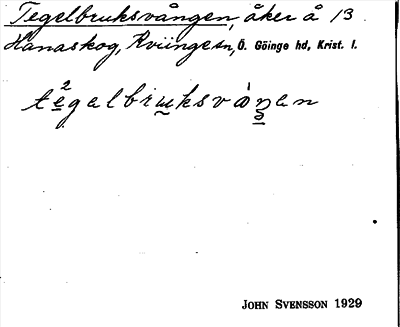 Tegelbruksvången, åker å 13
Hanaskog, Kviinge sn, Ö. Göinge hd, Krist. l.
te²gelbruksvàŋen
JOHN SVENSSON 1929